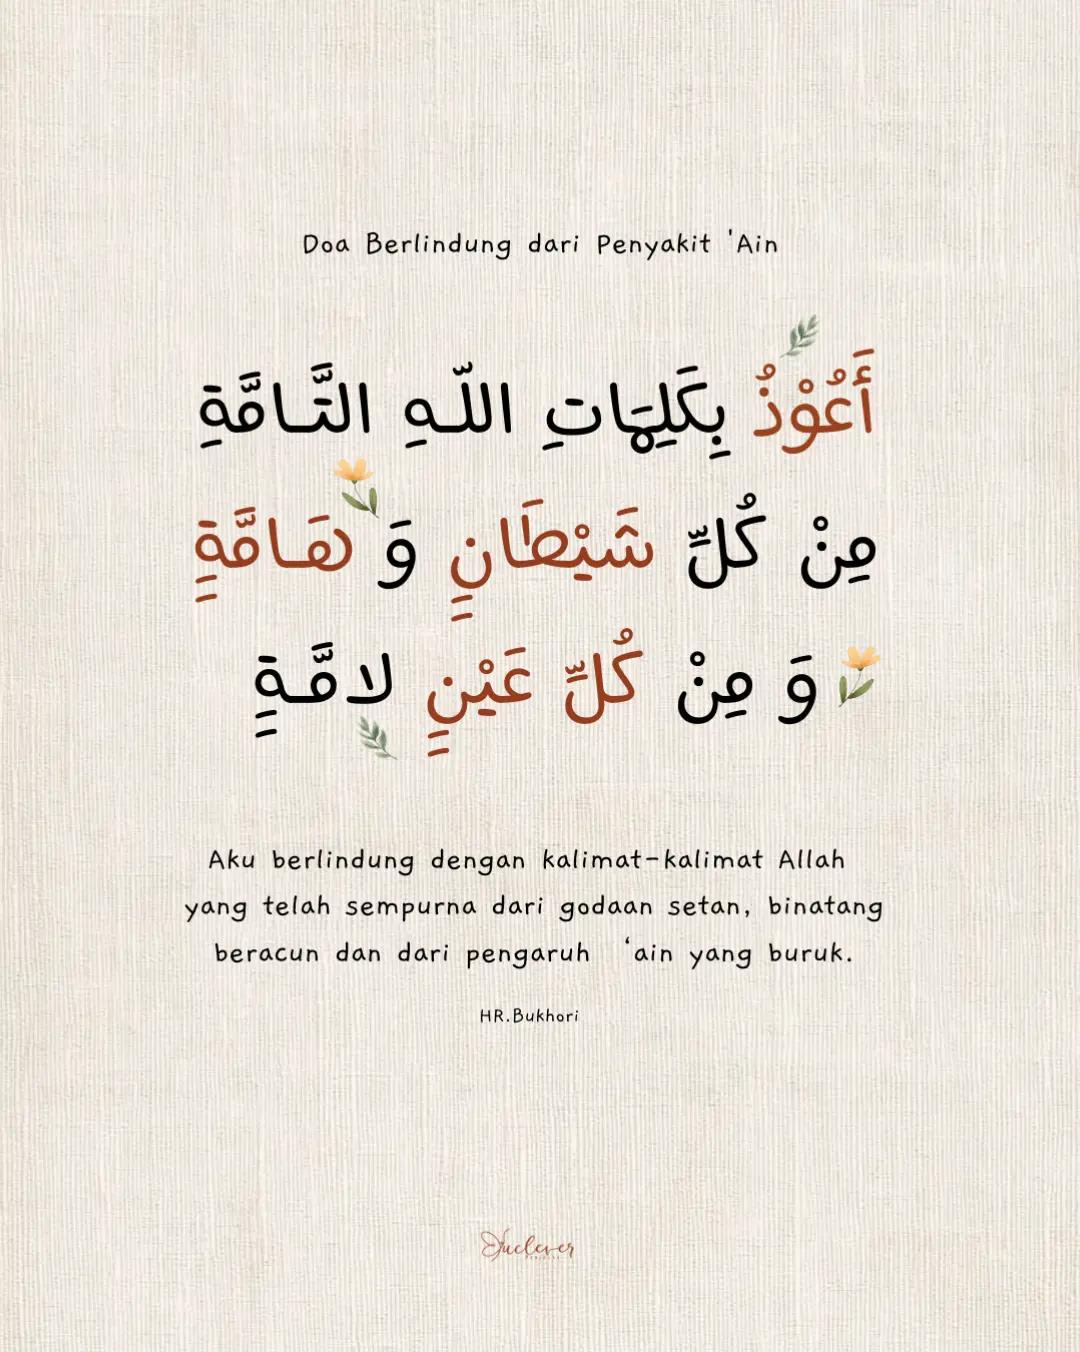 Doa Berlindung dari Penyakit 'Ain
أَعُوْذُ بِكَلِمَاتِ اللّٰهِ التَّامَّةِ
مِنْ كُلِّ شَيْطَانٍ وَ هَامَّةٍ
وَ مِنْ كُلِّ عَيْنٍ لامَّةٍ
Aku berlindung dengan kalimat-kalimat Allah
yang telah sempurna dari godaan setan, binatang
beracun dan dari pengaruh ‘ain yang buruk.
HR.Bukhori